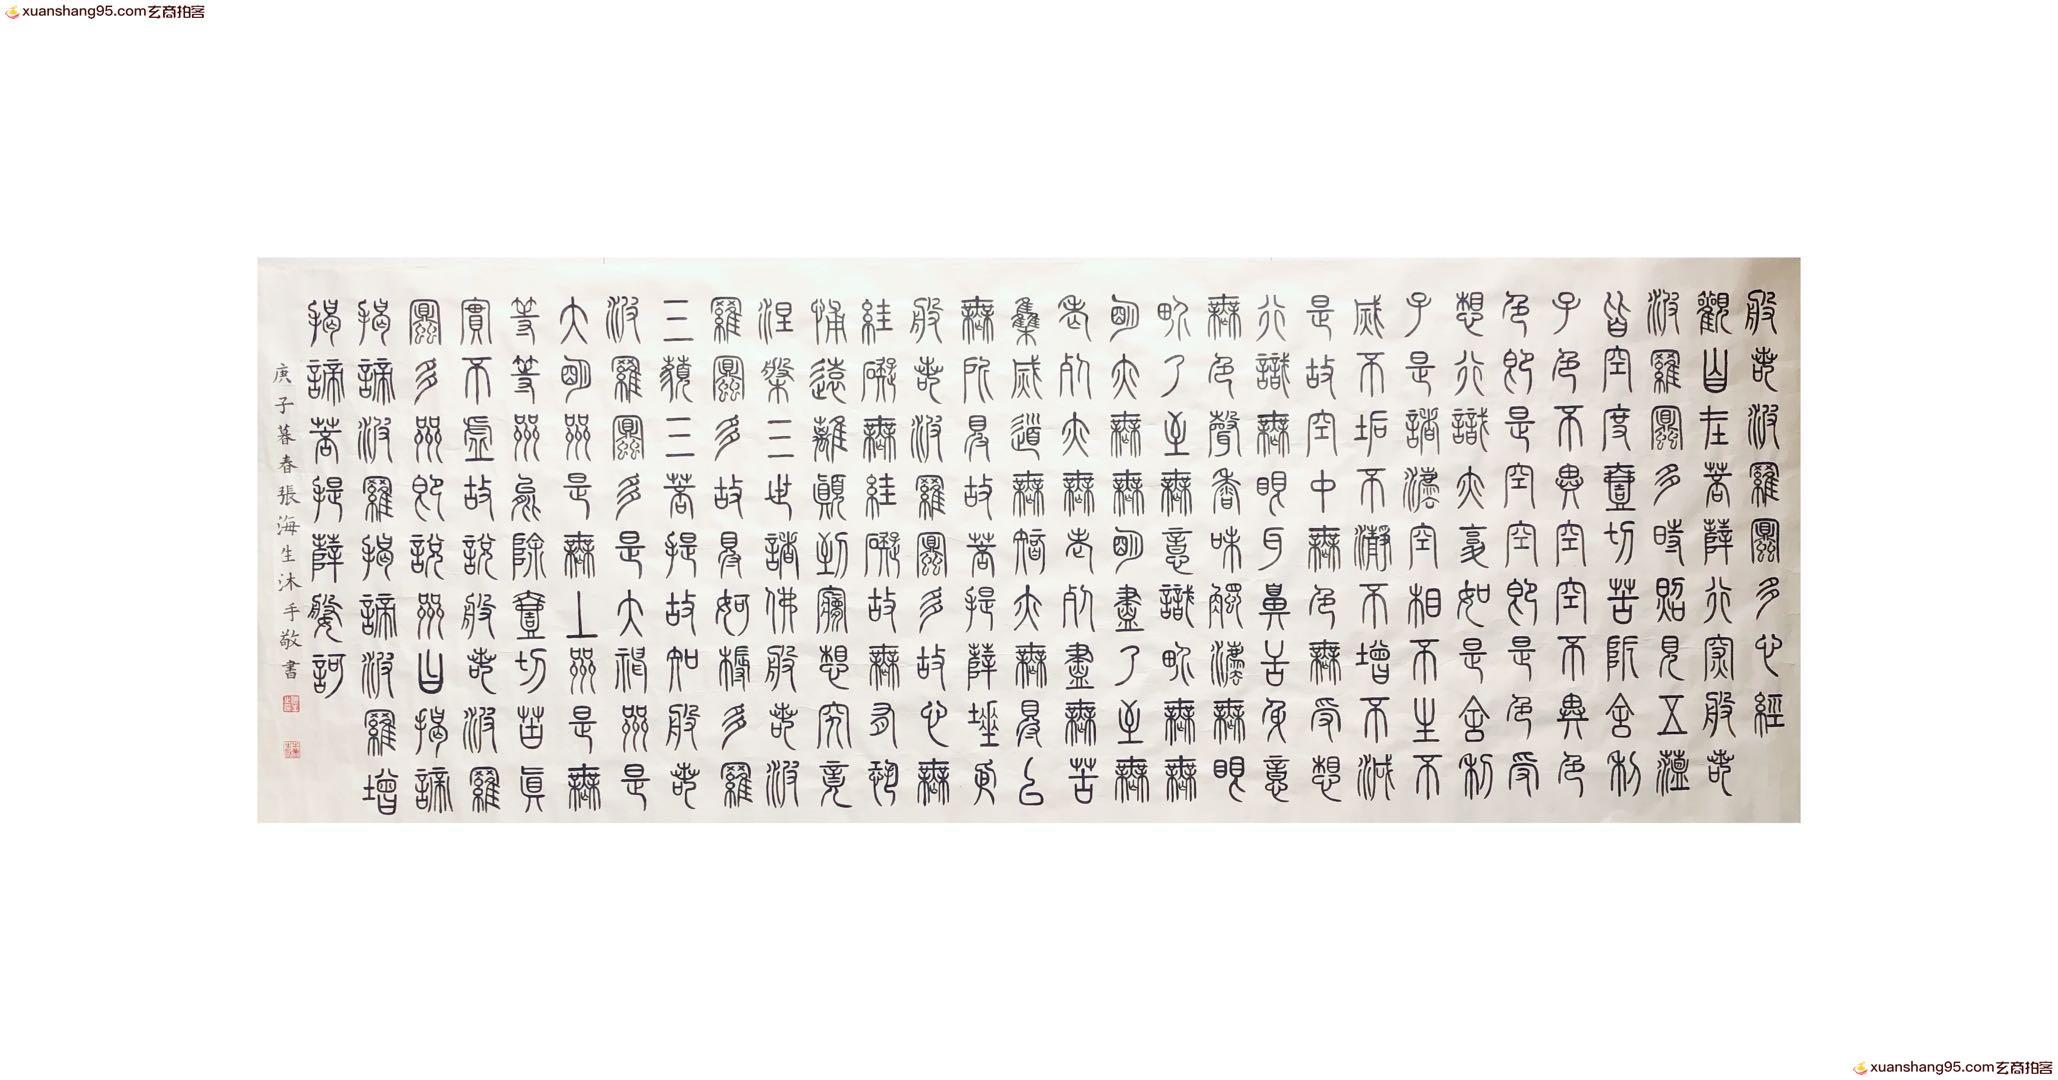 xuanshang95.com玄商拍客
般若波羅蜜多心經
觀自在菩薩行深般若
波羅蜜多時照見五蘊
皆空度壹切苦厄舍利
子色不異空空不異色
色即是空空即是色受
想行識亦復如是舍利
子是諸法空相不生不
滅不垢不淨不增不減
是故空中無色無受想
行識無眼耳鼻舌身意
無色聲香味觸法無眼
界乃至無意識界無無
明亦無無明盡乃至無
老死亦無老死盡無苦
集滅道無智亦無得以
無所得故菩提薩埵依
般若波羅蜜多故心無
罣礙無罣礙故無有恐
怖遠離顛倒夢想究竟
涅槃三世諸佛般若波
羅蜜多故得阿耨多羅
三藐三菩提故知般若
波羅蜜多是大神咒是
大明咒是無上咒是無
等等咒能除壹切苦真
實不虛故說般若波羅
蜜多咒即說咒曰揭諦
揭諦波羅揭諦波羅增
揭諦菩提薩婆訶
庚子暮春張海生沐手敬書
xuanshang95.com玄商拍客